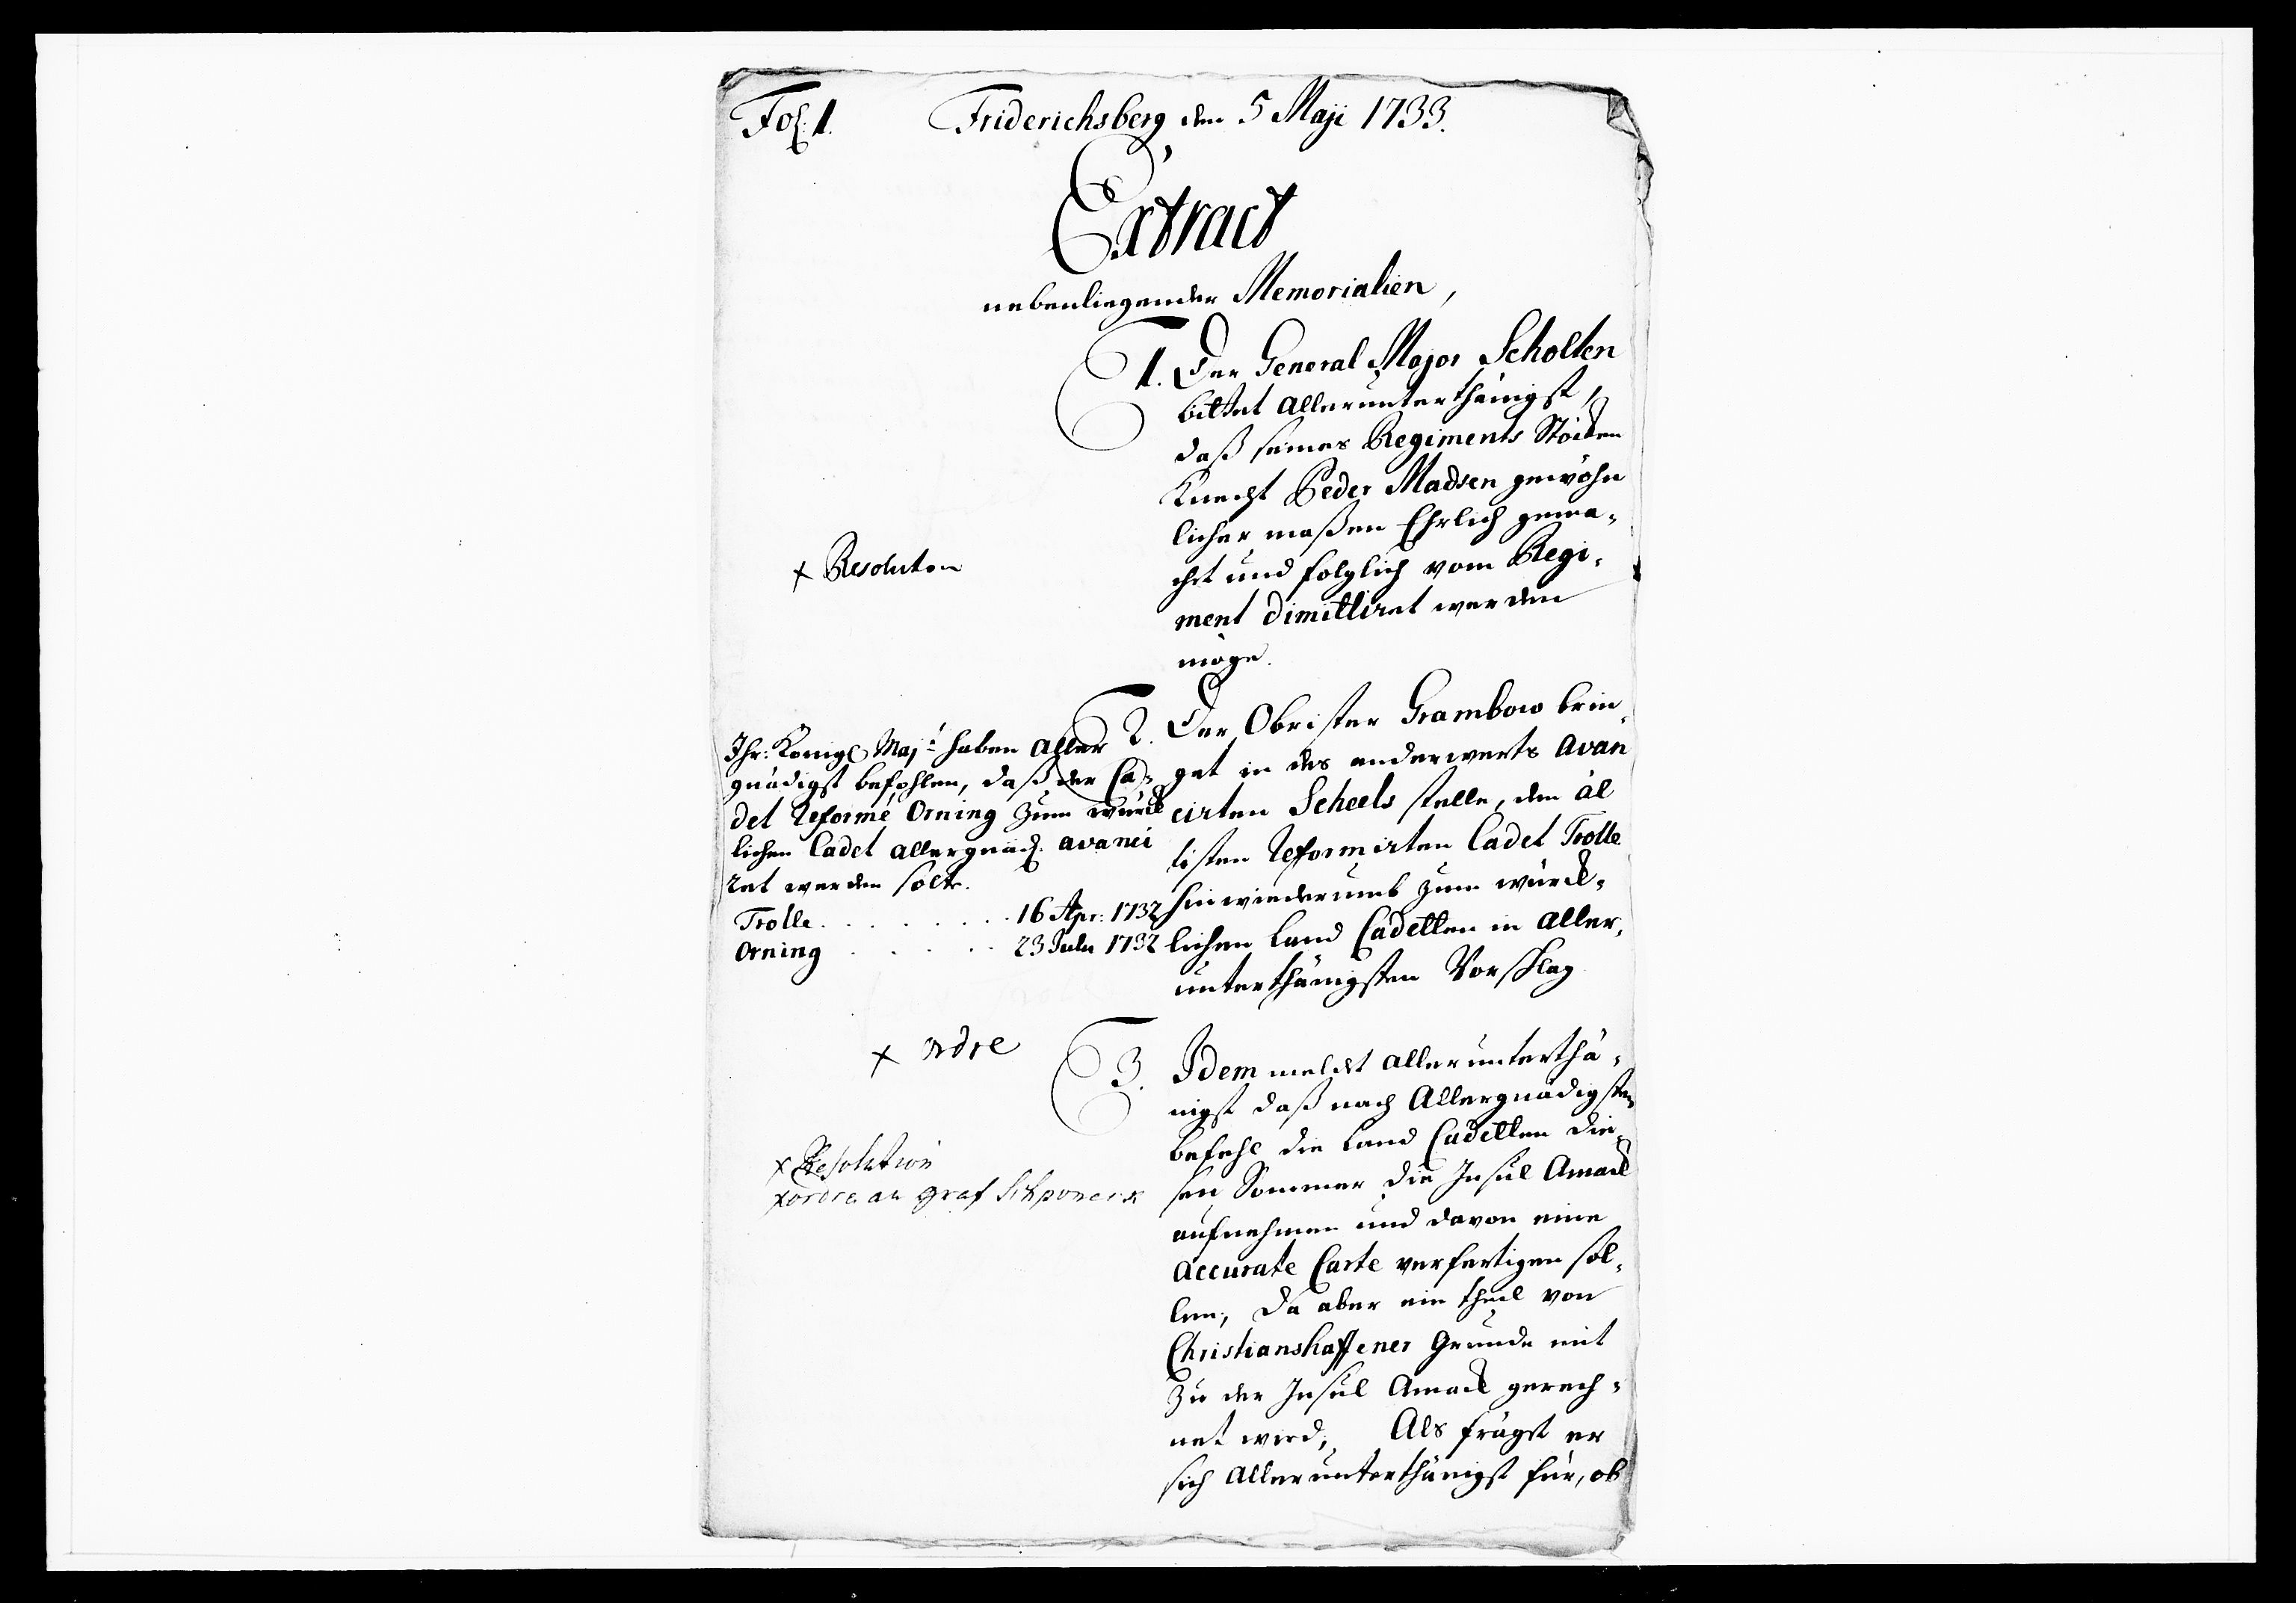 Fol: 1.
Friderichsberg den 5 Maji 1733.
Extract
nebenliegender Memorialien,
1. Der General Major Scholten
bittet allerunterthänigst,
daß seines Regiments Stöcken
Knecht Peder Madsen gewöhn
licher maßen Ehrlich gema-
cht und folglich vom Regi-
ment dimittiret werden
möge.
x Resolution
2. Der Obrister Grambow brin-
get in des anderwerts avan
cirten Scheels stelle, den äl
tisten Reformirten Cadet Trolle
hinwiederumb zum würck-
lichen Land Cadetten in aller-
unterthänigsten Vorschlag
Ihr: Königl Maj: haben aller
gnädigst befohlen, daß der Ca-
det Reformé Orning zum würck
lichen Cadet allergnäd. avanci
ret werden solte.
Trolle . . . . . . . . 16 Apr: 1732
Orning . . . . . 23 July 1732
x ordre
3. Idem meldet allerunterthä-
nigst daß nach Allergnädigsten
befehl die Land Cadetten die-
sen Sommer die Insul Amack
aufnehmen und davon eine
accurate Carte verfertigen sol-
len, Da aber ein theil von
Christianshaffener Grunde mit
zu der Insul Amack gerech-
net wird, Als frägst er
sich allerunterthänigst für, ob
x Resolution
x ordre an graf